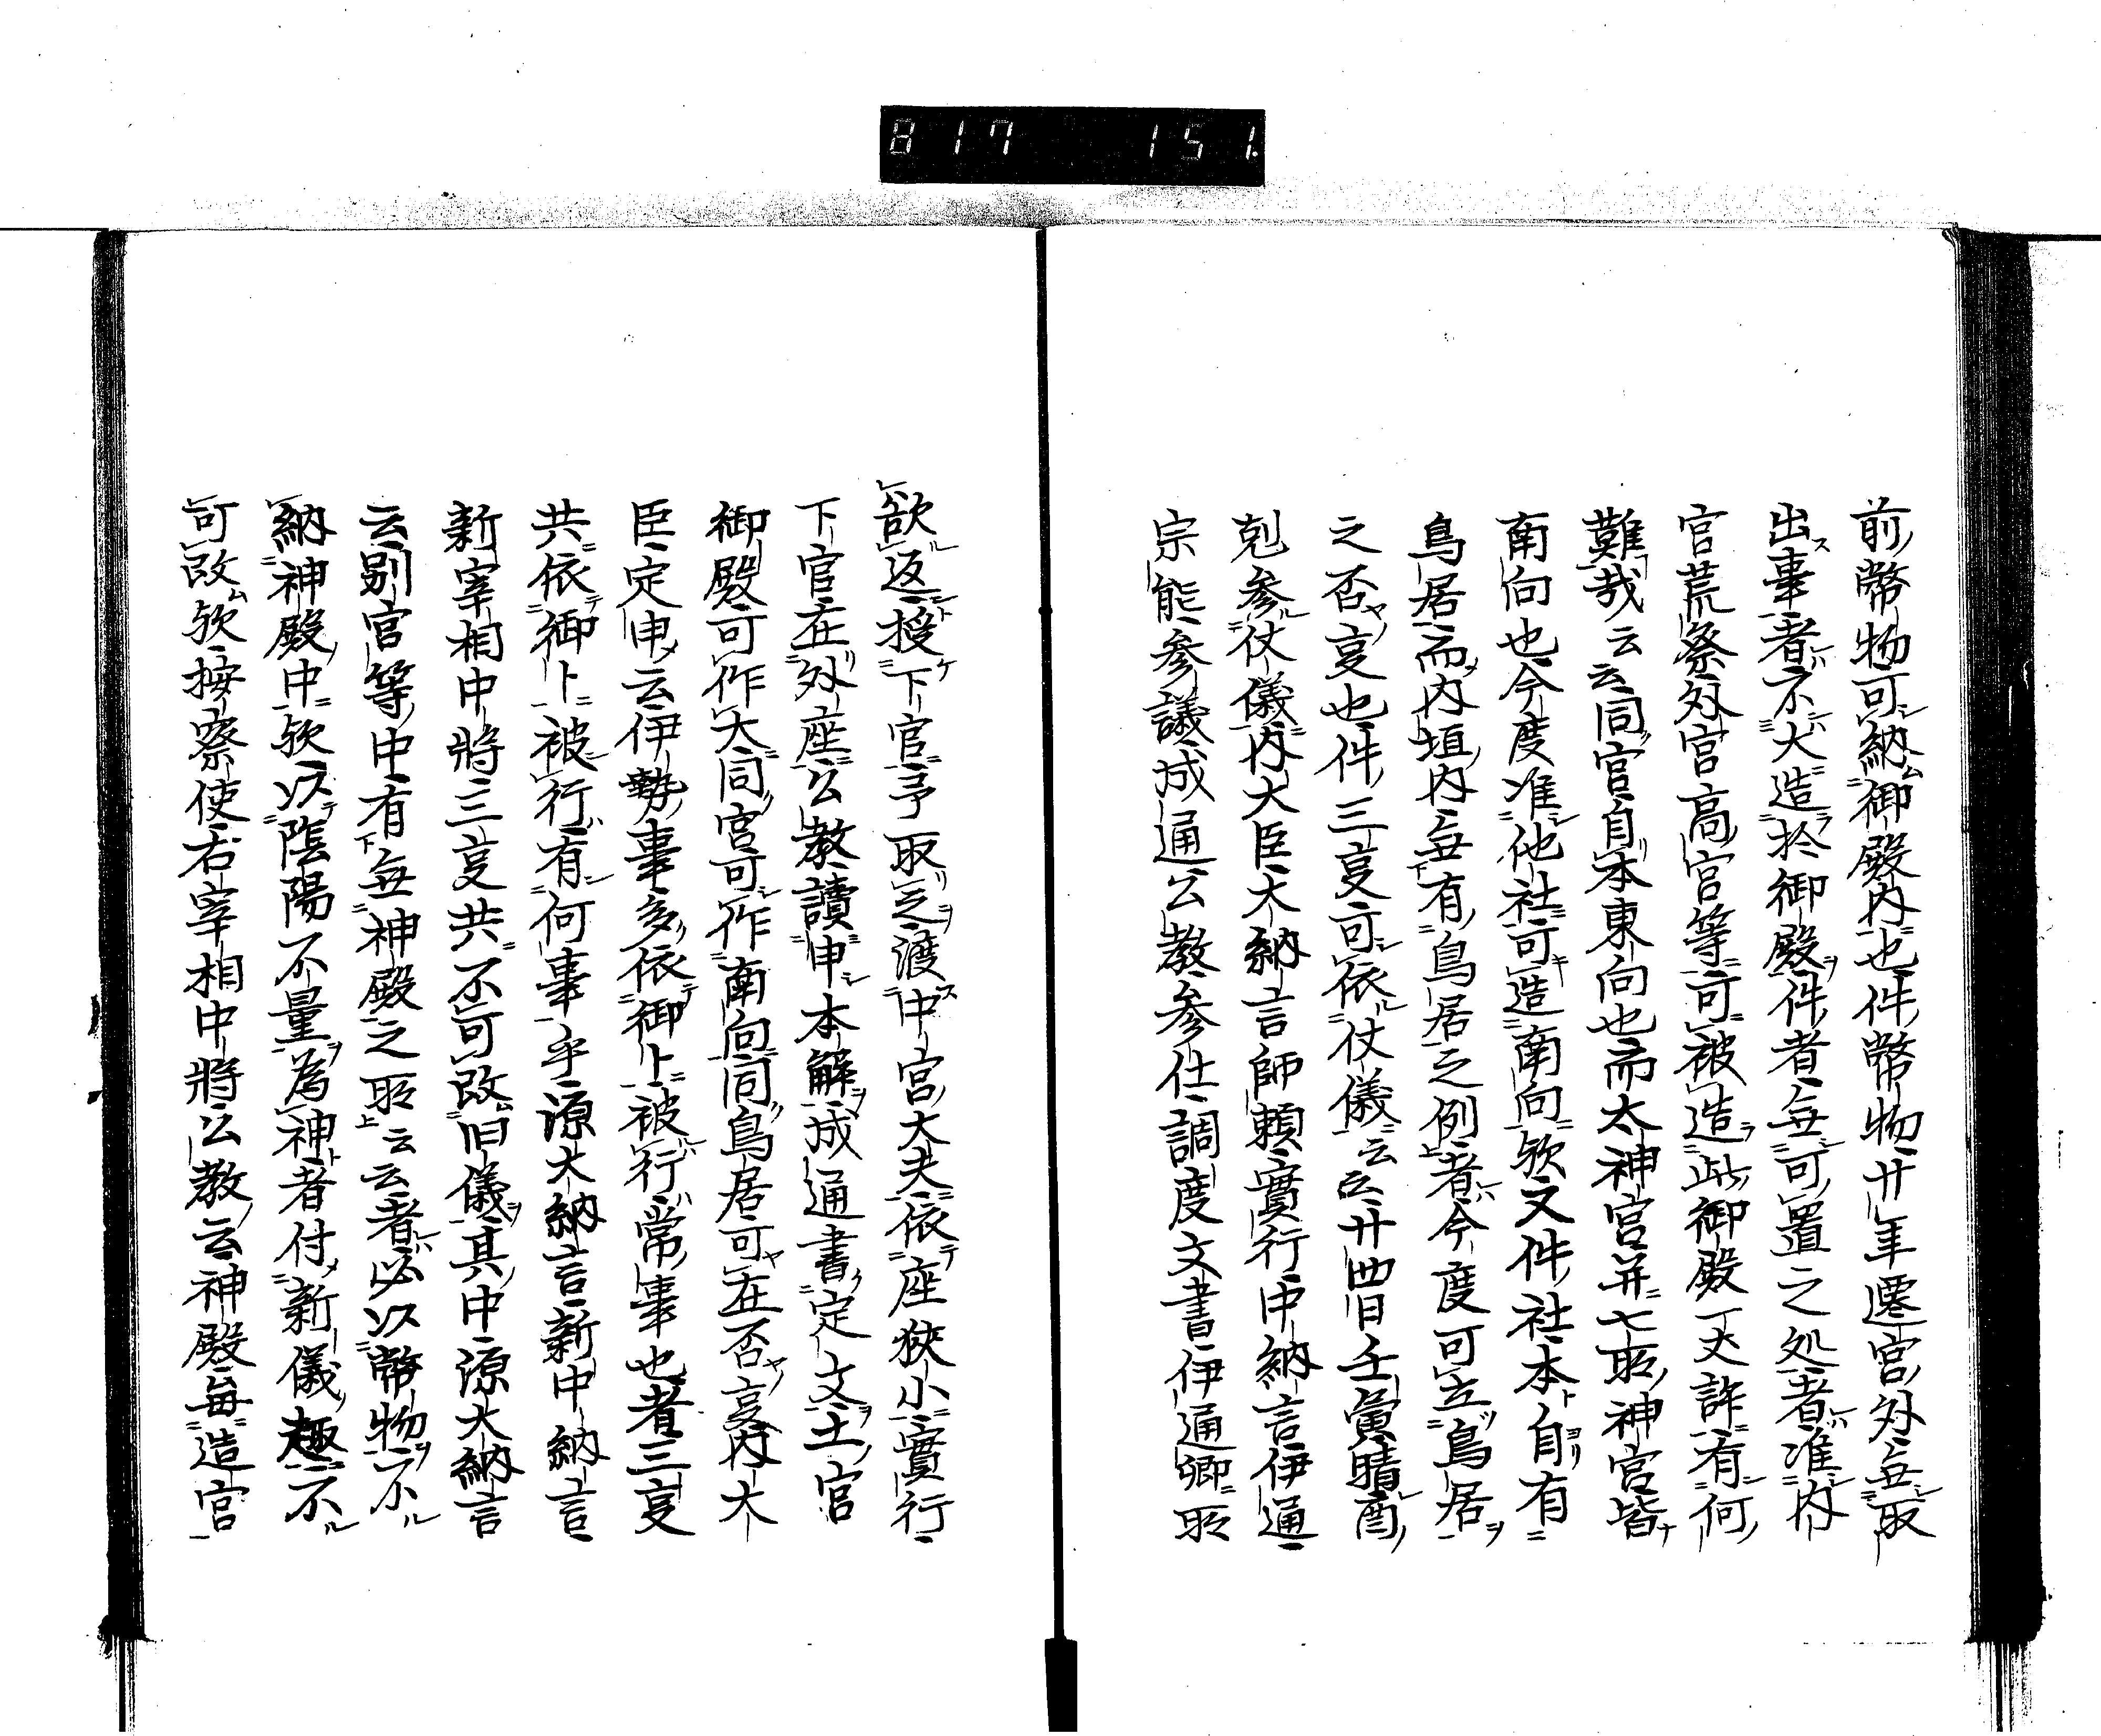 817 151.
前幣物可納御殿内也件幣物廿年遷宮外無取
出事者不大造於御殿件者無可置之処者准内
官荒祭外宮高宮等可被造此御殿丁丈許有何
難哉云云同宮自本東向也而太神宮并七所神宮皆
南向也今度准他社可造南向欤又件社本自有
鳥居而内垣内無有鳥居之例者今度可立鳥居
之否㕝也件三㕝可依仗儀云云廿四日壬寅晴酉
剋参仗儀内大臣大納言師頼實行中納言伊通
宗能参議成通公教参仕調度文書伊通卿取
欲返授下官予取之渡中宮大夫依座狭小實行
下官在外座公教讀申本解成通書定文土宮
御殿可作大同宮可作南向同鳥居可在否㕝内大
臣定申云伊勢事多依御卜被行常事也者三㕝
共依御卜被行有何事乎源大納言新中納言
新宰相中將三㕝共不可改旧儀其中源大納言
云別宮等中有無神殿之所云云者必以幣物不
納神殿中欤以陰陽不量為神者付新儀趣不
可改欤按察使右宰相中將公教云神殿毎造宮